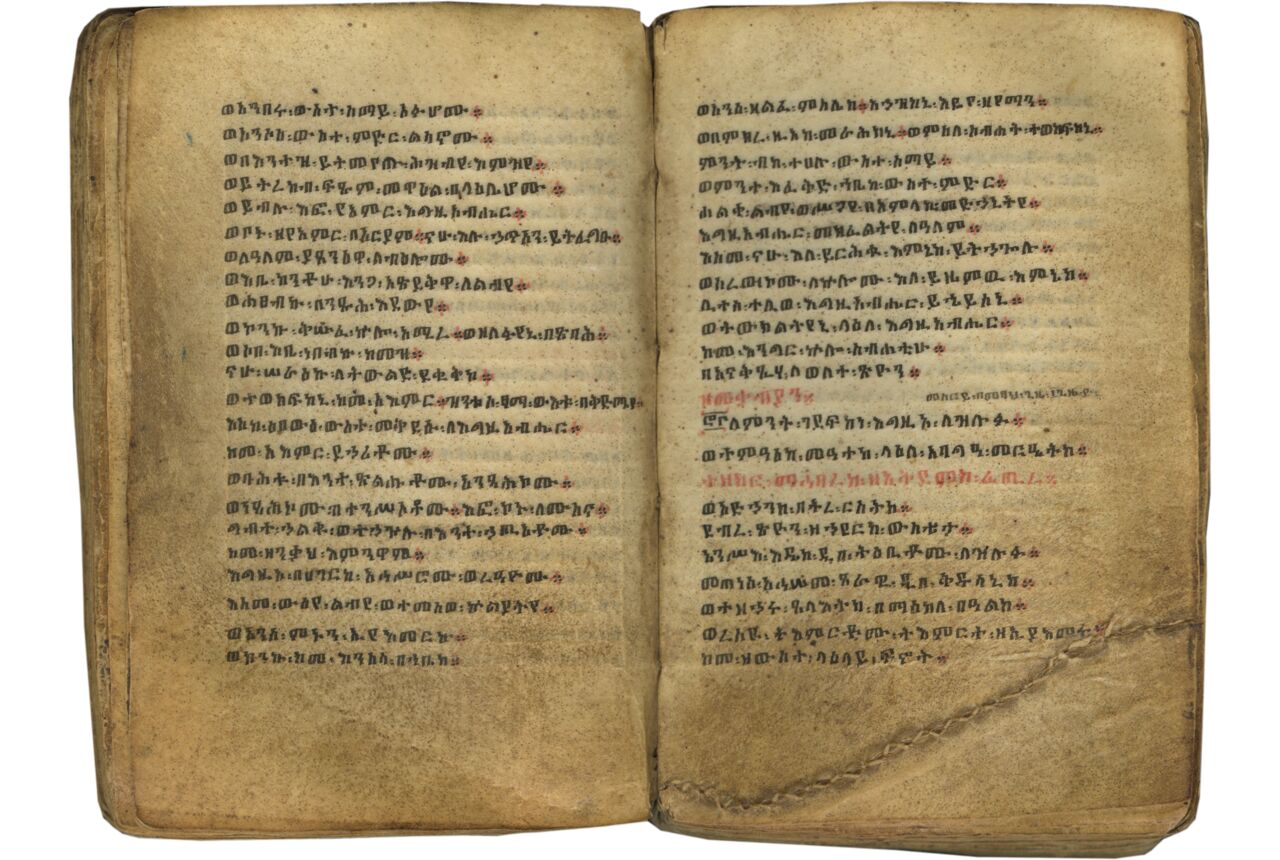 ወአንበሩ፡ውስተ፡ሰማይ፡አፉሆሙ።
ወአንሶሰወ፡ውስተ፡ምድር፡ልሳኖሙ።
ወበእንተዝ፡ይትመየጡ፡ሕዝብየ፡እምዝየ።
ወይትረከብ፡ፍጹም፡መዋዕል፡በላዕሌሆሙ።
ወይብሉ፡እፎ፡የአምር፡እግዚአብሔር።
ወቦኑ፡ዘየአምር፡በአርያም።ናሁ፡እሉ፡ኃጥአን፡ይትፌግዑ።
ወለዓለም፡ያጸንዕዋ፡ለብዕሎሙ።
ወእቤ፡ከንቶሁ፡እንጋ፡አጽደቅዋ፡ለልብየ።
ወሐፀብኩ፡በንጹሕ፡እደውየ።
ወኮንኩ፡ቅሡፈ፡ኵሎ፡አሚረ።ወዘለፋየኒ፡በጽባሕ።
ወሶበ፡እቤ፡ነበብኩ፡ከመዝ።
ናሁ፡ሠራዕኩ፡ለትውልደ፡ደቂቅከ።
ወተወከፍከኒ፡ከመ፡አእምር።ዝንቱሰ፡ፃማ፡ውእቱ፡በቅድሜየ።
እስከ፡እበውእ፡ውስተ፡መቅደሱ፡ለእግዚአብሔር።
ከመ፡አእምር፡ደኃሪቶሙ።
ወባሕቱ፡በእንተ፡ጽልሑቶሙ፡አጽናሕኮሙ።
ወነፃሕኮሙ፡በተንሥኦቶሙ።እፎ፡ኮኑ፡ለሙስና።
ግብተ፡ኃልቁ፡ወተኃጕሉ፡በእንተ፡ኃጢአቶሙ።
ከመ፡ዘንቃህ፡እምንዋም።
እግዚኦ፡በሀገርከ፡አኅሥሮሙ፡ወረዓዮሙ።
እስመ፡ውዕየ፡ልብየ፡ወተመስወ፡ኵልያትየ።
ወአንሰ፡ምኑን፡ኢየአመርኩ።
ወኮንኩ፡ከመ፡እንስሳ፡በኀቤከ።
ወአንሰ፡ዘልፈ፡ምስሌከ።አኀዝከኒ፡እዴየ፡ዘየማን።
ወበምክረ፡ዚአከ፡መራሕከኒ።ወምስለ፡ስብሐት፡ተወከፍከኒ።
ምንት፡ብከ፡ተሀሉ፡ውስተ፡ሰማይ።
ወምንተ፡እፈቅድ፡ኀቤከ፡ውስተ፡ምድር።
ሐልቀ፡ልብየ፡ወሥጋየ፡በአምላከ፡መድኃኒትየ።
እግዚአብሔር፡መክፈልትየ፡ለዓለም።
እስመ፡ናሁ፡እለ፡ይርሕቁ፡እምኔከ፡ይትኃጐሉ።
ለኵሎሙ፡እለ፡ይዜምዉ፡እምኔከ።
ሊተሰ፡ተሊወ፡እግዚአብሔር፡ይኄይሰኒ።
ወትውክልትየኒ፡ላዕለ፡እግዚአብሔር።
ከመ፡እንግር፡ኵሎ፡ስብሐቲሁ።
በአናቅጺሃ፡ለወለተ፡ጽዮን።
፸፫ለምንት፡ገደፍከነ፡እግዚኦ፡ለዝሉፉ።
ወተምዓዕከ፡መዓተከ፡ላዕለ፡አባግዓ፡መርዔትከ።
ተዘከር፡ማኅበረከ፡ዘአቅደምከ፡ፈጢረ።
ወአድኀንከ፡በትረ፡ርስትከ።
ደብረ፡ጽዮን፡ዘኀደርከ፡ውስቴታ።
አንሥእ፡እዴከ፡ዲበ፡ትዕቢቶሙ፡ለዝሉፉ።
መጠነ፡አሕሠመ፡ፀራዊ፡ዲበ፡ቅዱሳኒከ።
ወተዝኅሩ፡ጸላእትከ፡በማእከለ፡በዓልከ።
ወረሰዩ፡ትእምርቶሙ፡ትእምርተ፡ዘኢያእመሩ።
ከመ፡ዘውስተ፡ላዕላይ፡ፍኖት።